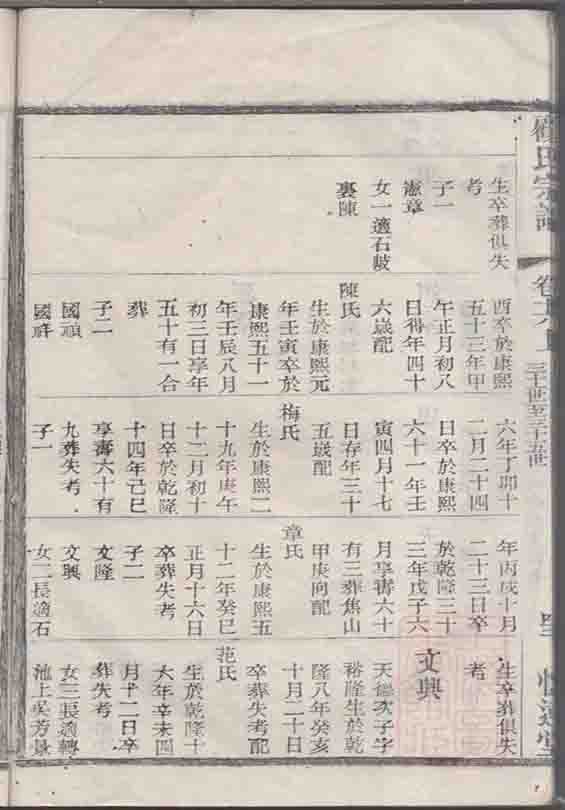 氏宗譜
卷
三十一世至三十五世
生卒葬俱失
考
子一
憲章
女一適石鼓
裏陳
酉卒於康熙
五十三年甲
午正月初八
日得年四十
六歲配
陳氏
生於康熙元
年壬寅卒於
康熙五十一
年壬辰八月
初三日享年
五十有一合
葬
子二
國禎
國祥
六年丁卯十
二月二十四
日卒於康熙
六十一年壬
寅四月十七
日存年三十
五歲配
梅氏
生於康熙二
十九年庚午
十二月初十
日卒於乾隆
十四年己巳
享壽六十有
九葬失考
子一
年丙戌十月
二十三日卒
於乾隆三十
三年戊子六
月享壽六十
有三葬焦山
甲庚向配
章氏
生於康熙五
十二年癸巳
正月十六日
卒葬失考
子二
文隆
文興
女二長適石
生卒葬俱失
考
文興
天德次子字
裕隆生於乾
隆八年癸亥
十月二十日
卒葬失考配
范氏
生於乾隆十
六年辛未四
月十二日卒
葬失考
女三長適轉
池上吳芳景